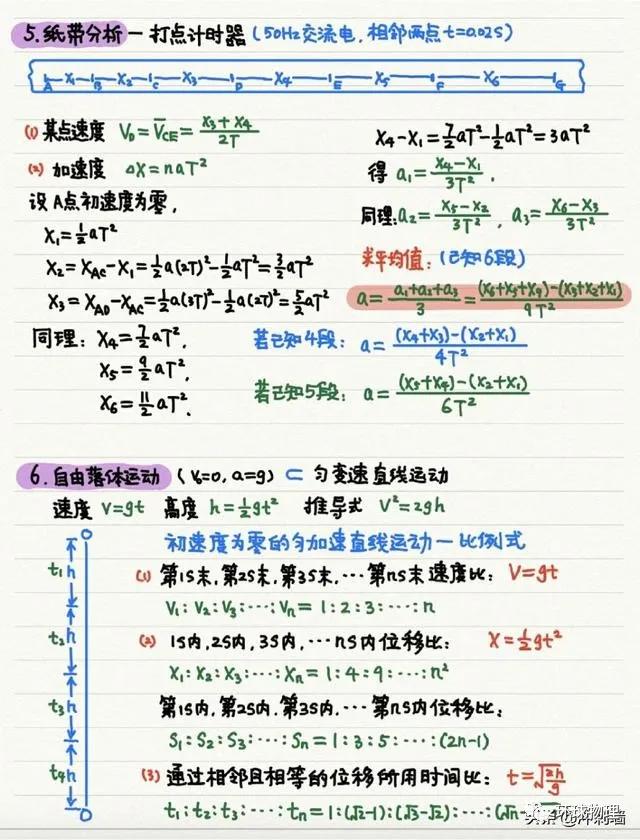 5.纸带分析—打点计时器(50Hz交流电,相邻两点t=0.02s)
A X₁ B X₂ C X₃ D X₄ E X₅ F X₆ G
(1) 某点速度 V_D=V̅_CE=(X₃+X₄)/2T
(2) 加速度 ΔX=naT²
设A点初速度为零,
X₁=½aT²
X₂=X_AC-X₁=½a(2T)²-½aT²=3/2aT²
X₃=X_AD-X_AC=½a(3T)²-½a(2T)²=5/2aT²
同理:X₄=7/2aT²,
X₅=9/2aT²,
X₆=11/2aT².
X₄-X₁=7/2aT²-½aT²=3aT²
得 a₁=(X₄-X₁)/3T²,
同理:a₂=(X₅-X₂)/3T², a₃=(X₆-X₃)/3T²
求平均值:(已知6段)
a=(a₁+a₂+a₃)/3=((X₆+X₅+X₄)-(X₃+X₂+X₁))/9T²
若已知4段: a=((X₄+X₃)-(X₂+X₁))/4T²
若已知5段: a=((X₅+X₄)-(X₂+X₁))/6T²
6.自由落体运动 (V₀=0, a=g) ⊂ 匀变速直线运动
速度 V=gt 高度 h=½gt² 推导式 V²=2gh
初速度为零的匀加速直线运动—比例式
t₁ h
t₂ h
t₃ h
t₄ h
(1) 第1s末,第2s末,第3s末,…第ns末速度比: V=gt
V₁:V₂:V₃:…:Vₙ=1:2:3:…:n
(2) 1s内,2s内,3s内,…ns内位移比: X=½gt²
X₁:X₂:X₃:…:Xₙ=1:4:9:…:n²
第1s内,第2s内,第3s内,…第ns内位移比:
S₁:S₂:S₃:…:Sₙ=1:3:5:…:(2n-1)
(3) 通过相邻且相等的位移所用时间比: t=√(2h/g)
t₁:t₂:t₃:…tₙ=1:(√2-1):(√3-√2):…:(√n-
环球物理